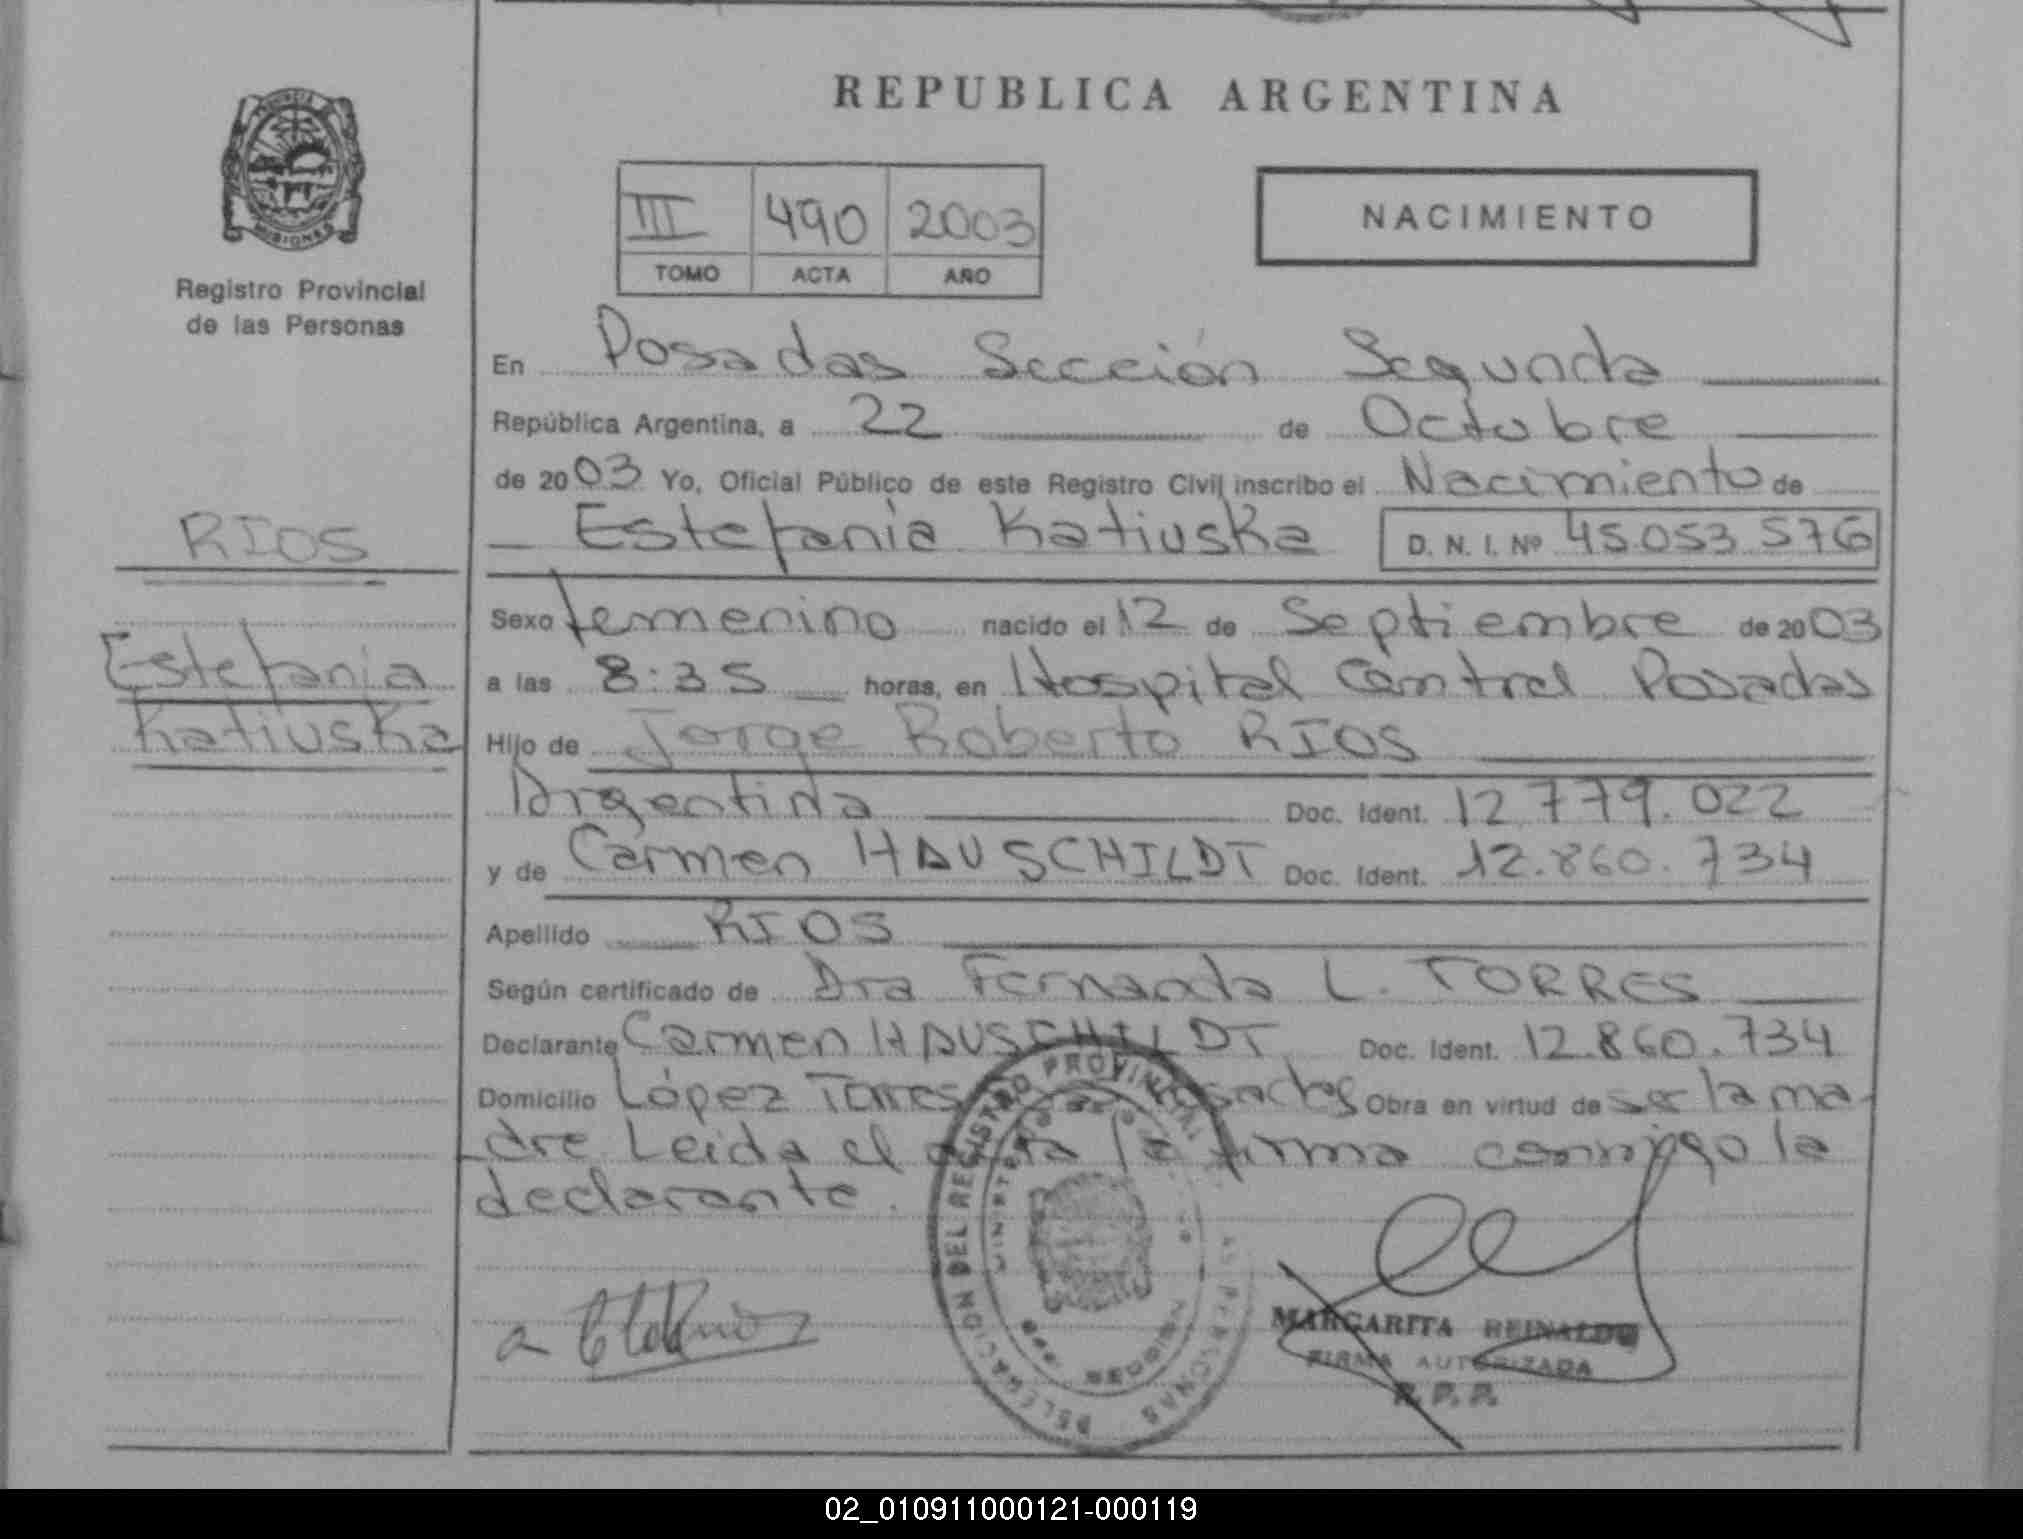 REPUBLICA ARGENTINA
PROVINCIA
MISIONES
Registro Provincial
de las Personas
III 490 2003
TOMO ACTA AÑO
NACIMIENTO
En Posadas Sección Segunda
República Argentina, a 22 de Octubre
de 2003 Yo, Oficial Público de este Registro Civil inscribo el Nacimiento de
Estefania Katiuska D. N. I. Nº 45.053.576
RIOS
Estefania
Katiuska
Sexo femenino nacido el 12 de Septiembre de 2003
a las 8:35 horas, en Hospital Central Posadas
Hijo de Jorge Roberto RIOS
Argentina Doc. Ident. 12.779.022
y de Carmen HAUSCHILDT Doc. Ident. 12.860.734
Apellido RIOS
Según certificado de Dra Fernanda L. TORRES
Declarante Carmen HAUSCHILDT Doc. Ident. 12.860.734
Domicilio López Torres Posadas Obra en virtud de ser la ma-
dre Leida el acta la firma conmigo la
declarante.
DELEGACION DEL REGISTRO PROVINCIAL DE LAS PERSONAS
MARGARITA REINALDO
FIRMA AUTORIZADA
R. P. P.
02_010911000121-000119